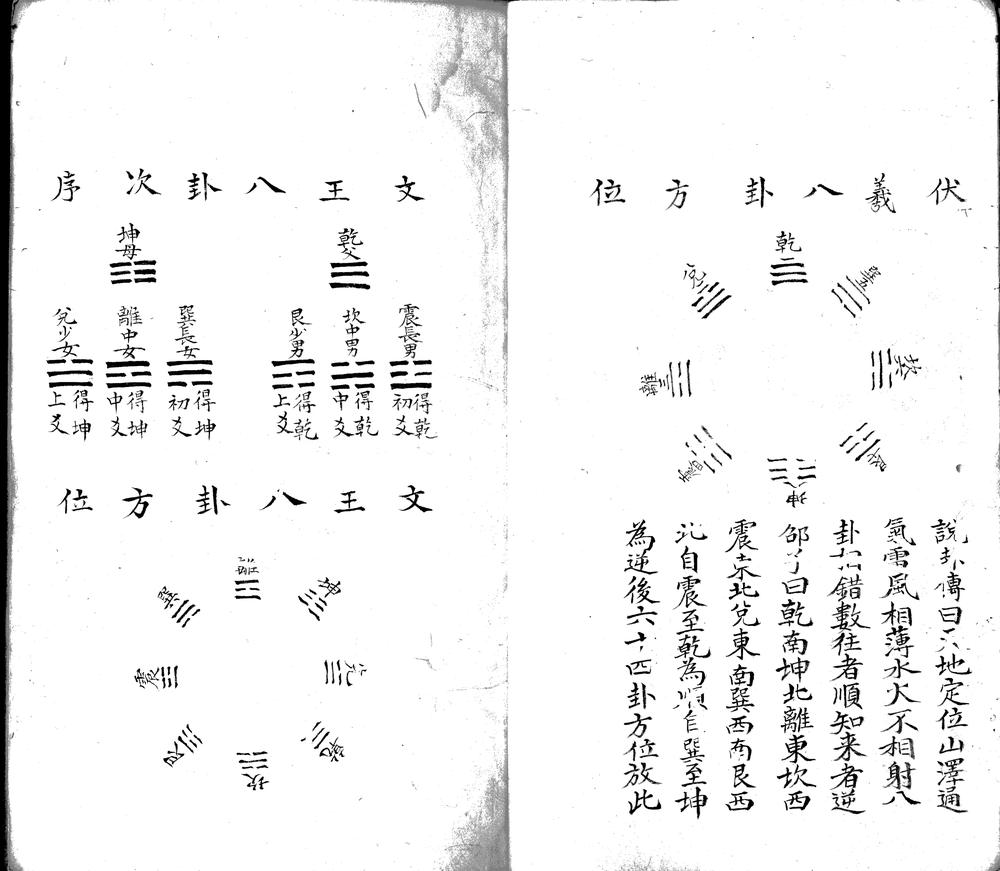 伏羲八卦方位
乾
兌
離
震
巽
坎
艮
坤
說卦傳曰天地定位山澤通
氣雷風相薄水火不相射八
卦相錯數往者順知来者逆
邵子曰乾南坤北離東坎西
震東北兌東南巽西南艮西
北自震至乾為順自巽至坤
為逆後六十四卦方位放此
文王八卦次序
乾父
坤母
震長男
坎中男
艮少男
巽長女
離中女
兌少女
得乾初爻
得乾中爻
得乾上爻
得坤初爻
得坤中爻
得坤上爻
文王八卦方位
離
坤
兌
乾
坎
艮
震
巽